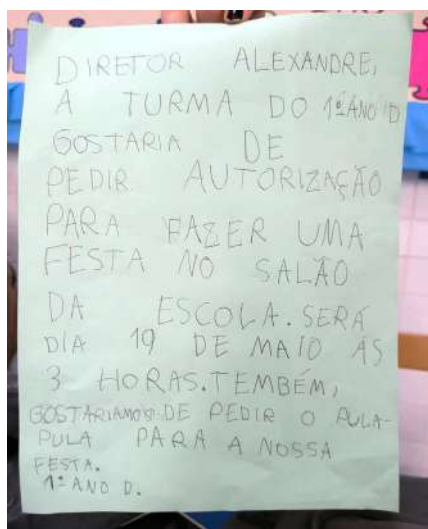 DIRETOR ALEXANDRE,
A TURMA DO 1º ANO D
GOSTARIA DE
PEDIR AUTORIZAÇÃO
PARA FAZER UMA
FESTA NO SALÃO
DA ESCOLA. SERÁ
DIA 19 DE MAIO AS
3 HORAS. TEMBÉM,
GOSTARIAMOS DE PEDIR O PULA-
PULA PARA A NOSSA
FESTA.
1º ANO D.